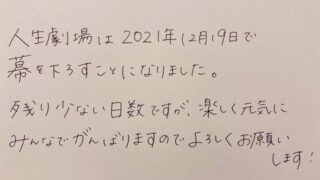 人生劇場は2021年12月19日で
幕を下ろすことになりました。
残り少ない日数ですが、楽しく元気に
みんなでがんばりますのでよろしくお願い
します!